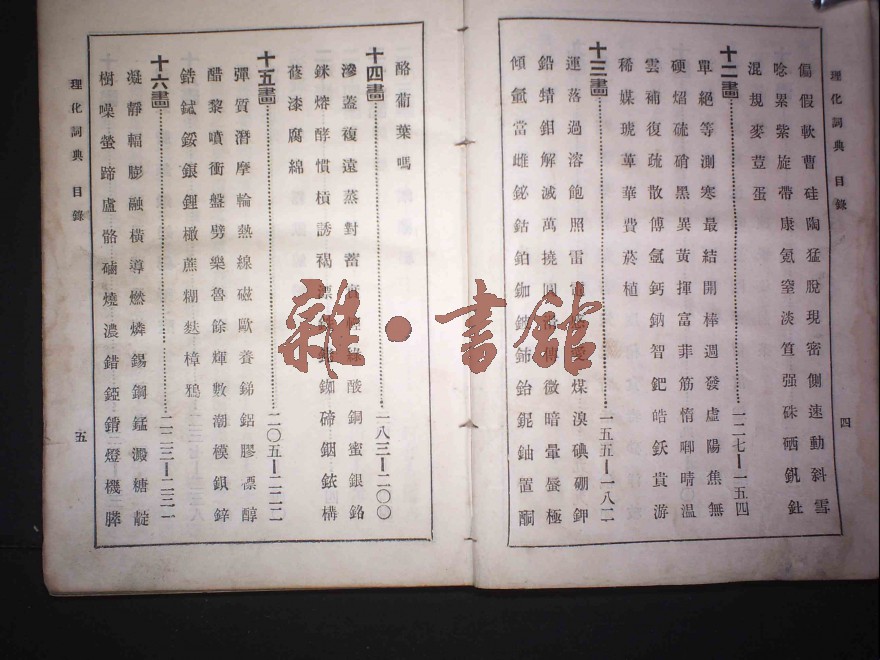 理化詞典 目錄
四
偏假軟曹硅陶猛脫現密側速動斜雪
唸累紫旋帶康氪窒淡笪强硃硒釩釷
混規麥荳蛋
十二畫 一二七—一五四
單絕等測寒最結開棒週發虛陽焦無
硬焰硫硝黑異黃揮富菲筋惰唧晴溫
雲補復疏散傅氬鈣鈉智鈀皓鈥貴游
稀媒琥萆華費菸植
十三畫 一五五—一八二
運落過溶飽照雷電愛煤溴碘硼鉀
鉛蜻鉗解滅萬撓圓傳微暗暈蜃極
傾氫當雌鉍鈷鉑鉫鈰鉿鈮鈾置酮
酪葡葉嗎
十四畫 一八三—二〇〇
滲蓋複遠蒸對蓄實綠酸銅蜜銀銘
銖熔酵慣槓誘褐漂銣碲銦銥構
蓰漆腐綿
十五畫 二〇五—二二二
彈質潛摩輪熱線磁歐養銻鋁膠標醇
醋黎噴衝盤劈樂魯餘輝數潮模鋇鋅
鋯鋱銨鋃鋰橄蔗糊麩樟鴉
十六畫 二二三—二三二
凝靜輻膨融橫導燃燐錫鋼錳澱糖靛
樹噪螢蹄盧骼磠燒濃錯錏錥燈機膵
理化詞典 目錄
五
雜·書館